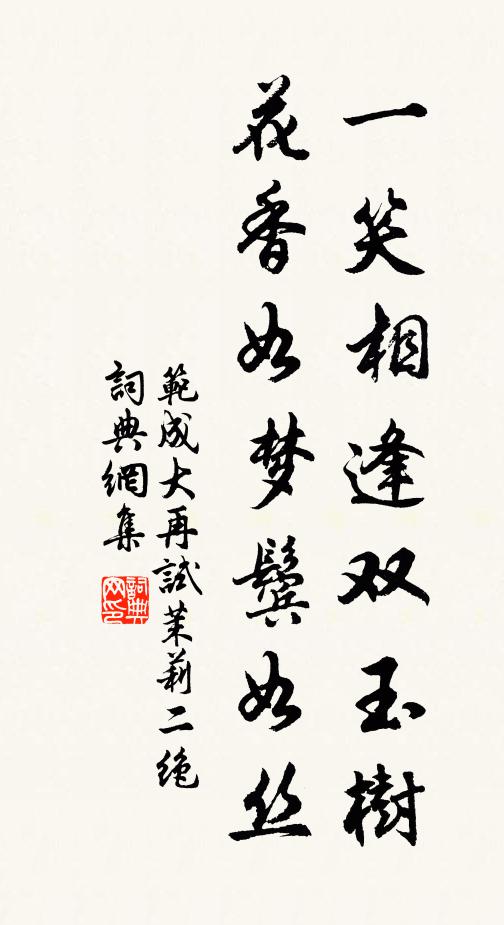 一笑相逢双玉樹
花香如梦鬓如丝
範成大再試茉莉二绝
詞典網集
詞典
网印